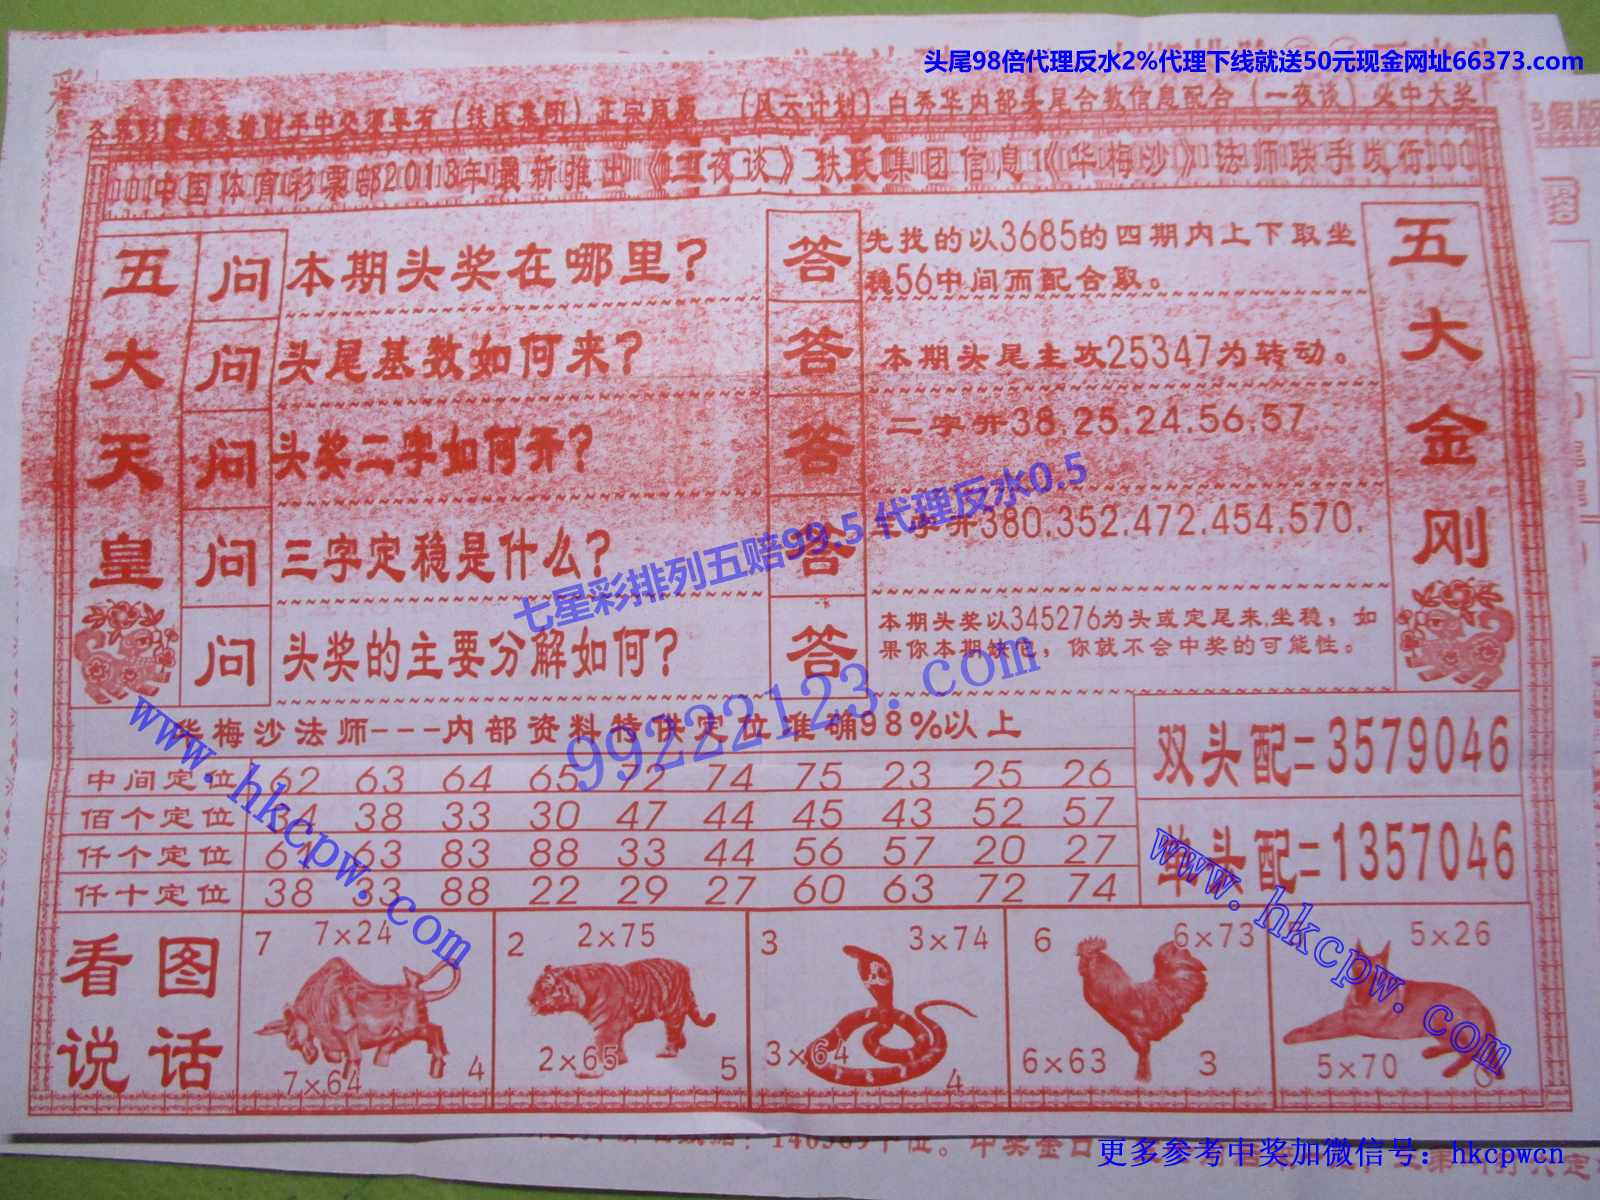 头尾98倍代理反水2%代理下线就送50元现金网址66373.com
(铁跃集团)正宗原版 (风云计划)白秀华内部头尾合数信息配合(一夜谈)必中大奖
中国体育彩票部2013年最新推出《一夜谈》铁跃集团信息《华梅沙》法师联手发行
五大天皇
五大金刚
问 本期头奖在哪里?
答 先找的以3685的四期内上下取坐
稳56中间而配合取。
问 头尾基数如何来?
答 本期头尾主攻25347为转动。
问 头奖二字如何开?
答 二字开38.25.24.56.57
问 三字定稳是什么?
答 字开380.352.472.454.570
问 头奖的主要分解如何?
答 本期头奖以345276为头或定尾来.坐稳,如
果你本期缺它,你就不会中奖的可能性。
七星彩排列五赔99.5 代理反水0.5
99222123.com
www.hkcpw.com
www.hkcpw.com
华梅沙法师---内部资料特供定位准确98%以上
中间定位 62 63 64 65 72 74 75 23 25 26
佰个定位 34 38 33 30 47 44 45 43 52 57
仟个定位 61 63 83 88 33 44 56 57 20 27
仟十定位 38 33 88 22 29 27 60 63 72 74
双头配=3579046
单头配=1357046
看图说话
7 7×24
7×64 4
2 2×75
2×65 5
3 3×74
3×64 4
6 6×73
6×63 3
5×26
5×70
更多参考中奖加微信号:hkcpwcn